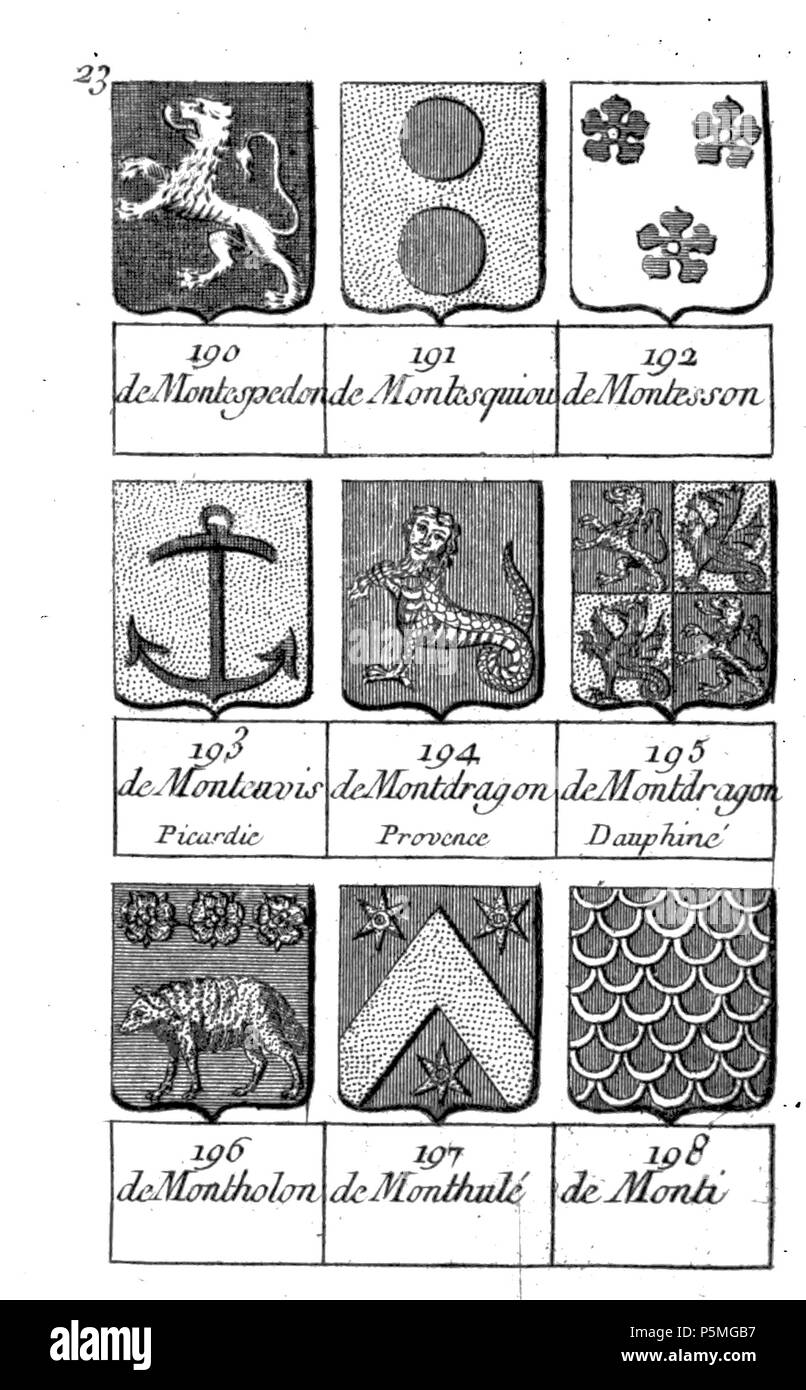 23
190
de Montespedon
191
de Montesquiou
192
de Montesson
193
de Montcavis
Picardie
194
de Montdragon
Provence
195
de Montdragon
Dauphiné
196
de Montholon
197
de Monthulé
198
de Monti
alamy
alamy
alamy
Image ID: P5MGB7
www.alamy.com